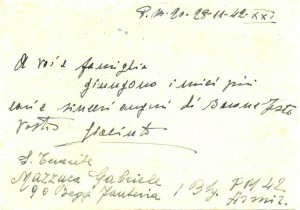 P.M. 20. 28-11-42-XXI
A voi e famiglia
giungono i miei più
cari e sinceri auguri di Buone Feste
Vostro Giacinto
S. Tenente
Mazzara Gabriele
90 Regg Fanteria I Btg. PM 42